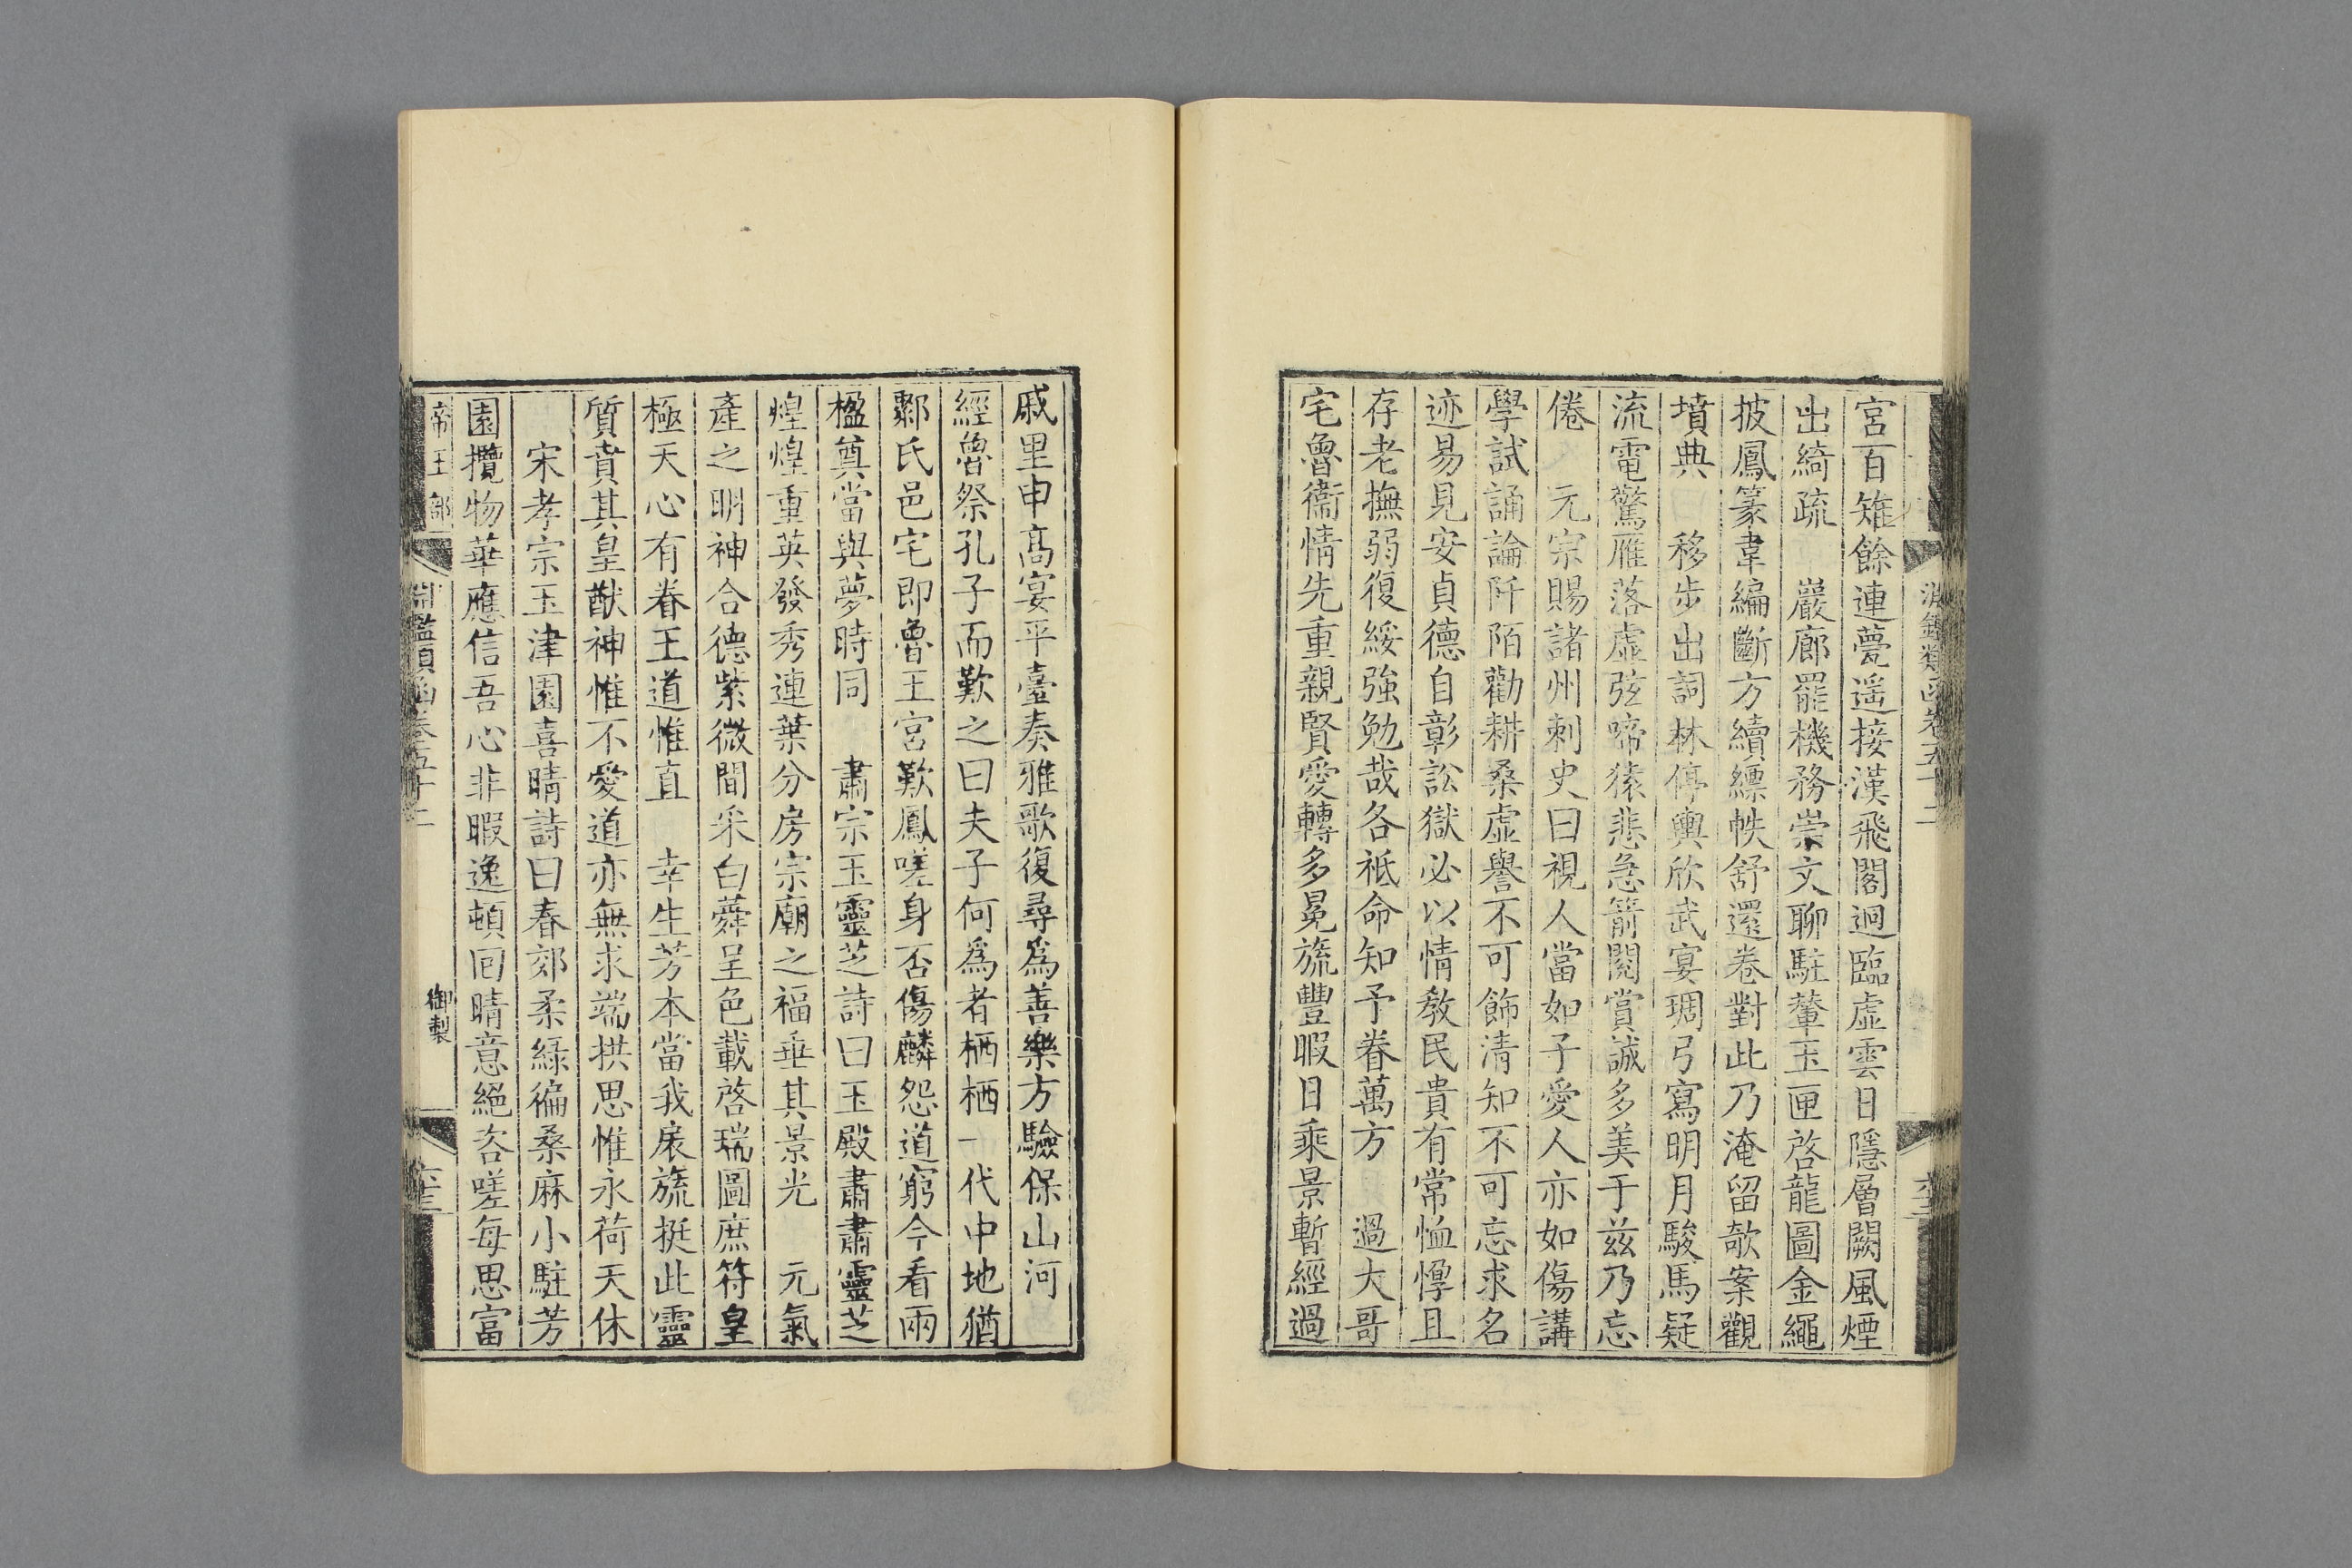 淵鑑類函卷五十二
宮百雉餘連甍遥接漢飛閣迥臨虛雲日隱層闕風煙
出綺疏　巖廊罷機務崇文聊駐輦玉匣啓龍圖金繩
披鳳篆韋編斷方續縹帙舒還卷對此乃淹留欹案觀
墳典　移步出詞林停輿欣武宴琱弓寫明月駿馬疑
流電驚雁落虛弦啼猿悲急箭閱賞誠多美于兹乃忘
倦　元宗賜諸州刺史曰視人當如子愛人亦如傷講
學試誦論阡陌勸耕桑虛譽不可飾清知不可忘求名
迹易見安貞德自彰訟獄必以情敎民貴有常恤惸且
存老撫弱復綏強勉哉各祗命知予眷萬方　過大哥
宅魯衞情先重親賢愛轉多冕旒豐暇日乘景暫經過
戚里申高宴平臺奏雅歌復尋爲善樂方驗保山河
經魯祭孔子而歎之曰夫子何爲者栖栖一代中地猶
鄹氏邑宅即魯王宮歎鳳嗟身否傷麟怨道窮今看兩
楹奠當與夢時同　肅宗玉靈芝詩曰玉殿肅肅靈芝
煌煌重英發秀連葉分房宗廟之福垂其景光　元氣
產之明神合德紫微間采白蕣呈色載啓瑞圖庶符皇
極天心有眷王道惟直　幸生芳本當我扆旒挺此靈
質賁其皇猷神惟不愛道亦無求端拱思惟永荷天休
宋孝宗玉津園喜晴詩曰春郊柔綠徧桑麻小駐芳
園攬物華應信吾心非暇逸頓回晴意絕咨嗟每思富
帝王部
淵鑑類函卷五十二
御製